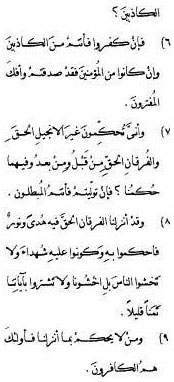 الكاذبين ؟
٦) فإن كفروا فأنتم من الكاذبين
وإن كانوا من المؤمنين فقد صدقتم وأفك
المفترون .
٧) وأنى تحكمون غير الإنجيل الحق
والفرقان الحق من قبل ومن بعد وفيهما
حكمنا ؟ فإن توليتم فأنتم المبطلون .
٨) وقد أنزلنا الفرقان الحق فيه هدى ونور
فاحكموا به وكونوا عليه شهداء ولا
تخشوا الناس بل اخشونا ولا تشتروا بآياتنا
ثمنا قليلا .
٩) ومن لا يحكم بما أنزلنا فأولئك
هم الكافرون .